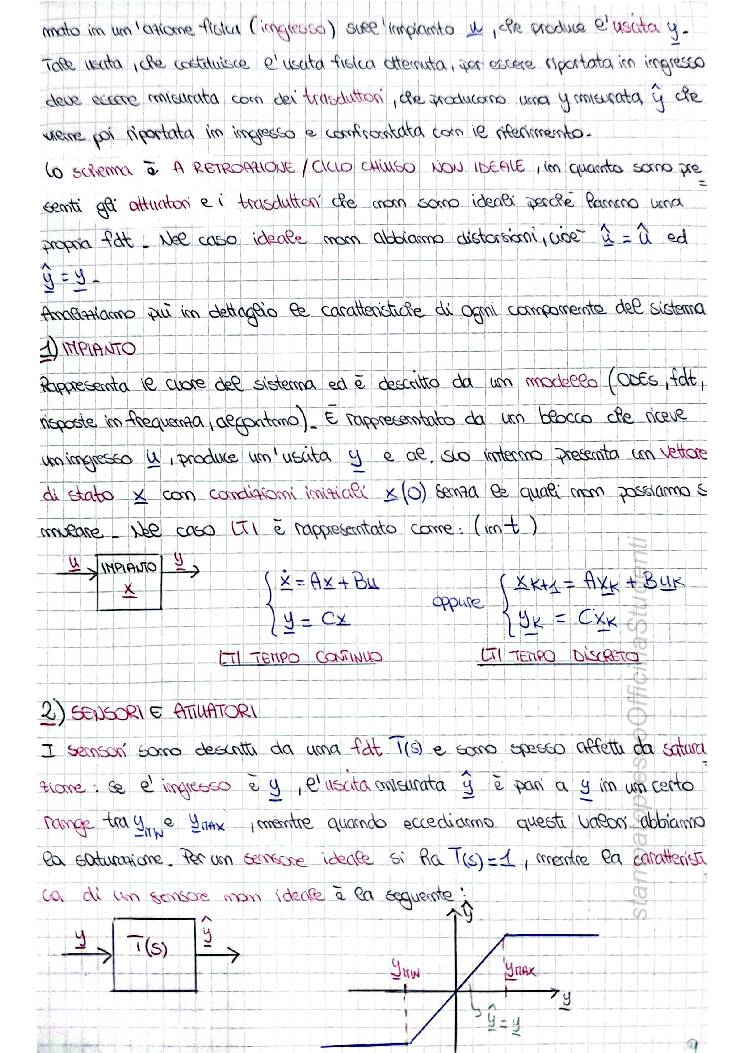 mato in un'azione fisica (ingresso) sull'impianto u, che produce l'uscita y.
Tale uscita, che costituisce l'uscita fisica ottenuta, per essere riportata in ingresso
deve essere misurata con dei trasduttori, che producono una y misurata ŷ che
viene poi riportata in ingresso e confrontata con il riferimento.
Lo schema è A RETROAZIONE / CICLO CHIUSO NON IDEALE, in quanto sono pre
senti gli attuatori e i trasduttori che non sono ideali perché hanno una
propria fdt. Nel caso ideale non abbiamo distorsioni, cioè û = u ed
ŷ = y.
Analizziamo più in dettaglio le caratteristiche di ogni componente del sistema
1) IMPIANTO
Rappresenta il cuore del sistema ed è descritto da un modello (ODEs, fdt,
risposte in frequenza, algoritmo). È rappresentato da un blocco che riceve
un ingresso u, produce un'uscita y e al suo interno presenta un vettore
di stato x con condizioni iniziali x(0) senza le quali non possiamo s
imulare. Nel caso LTI è rappresentato come: (in t)
u IMPIANTO x y
ẋ = Ax + Bu
y = Cx
LTI TEMPO CONTINUO
oppure
xK+1 = AxK + BuK
yK = CxK
LTI TEMPO DISCRETO
2) SENSORI E ATTUATORI
I sensori sono descritti da una fdt T(s) e sono spesso affetti da satura
zione: se l'ingresso è y, l'uscita misurata ŷ è pari a y in un certo
range tra yMIN e yMAX, mentre quando eccediamo questi valori abbiamo
la saturazione. Per un sensore ideale si ha T(s)=1, mentre la caratteristi
ca di un sensore non ideale è la seguente:
y T(s) ŷ
ŷ
yMIN
yMAX
y
ŷ = y
9
stampato presso Officina Studenti